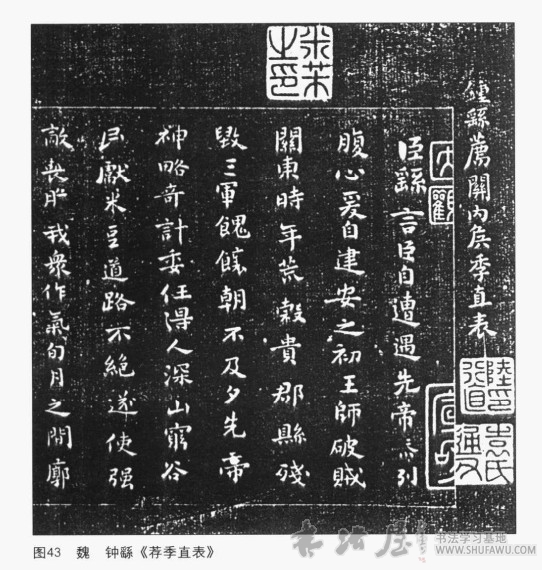 米芾之印
鍾繇薦關內侯季直表
大觀
臣繇言臣自遭遇先帝忝列
腹心爰自建安之初王師破賊
關東時年荒穀貴郡縣殘
毀三軍餽饟朝不及夕先帝
神略奇計委任得人深山窮谷
民獻米豆道路不絕遂使强
敵喪膽我衆作氣旬月之間廓
图43 魏 钟繇《荐季直表》
书法屋
书法学习基地
WWW.SHUFAWU.COM